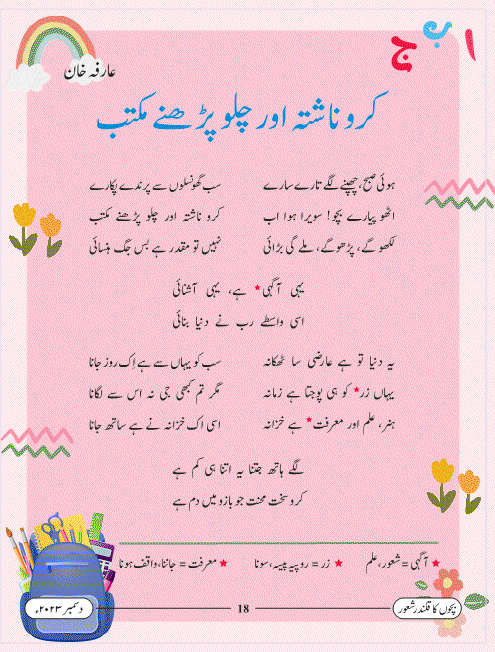 ا ب ج
عارفہ خان
کرو ناشتہ اور چلو پڑھنے مکتب
ہوئی صبح، چھپنے لگے تارے سارے سب گھونسلوں سے پرندے پکارے
اٹھو پیارے بچو! سویرا ہوا اب کرو ناشتہ اور چلو پڑھنے مکتب
لکھو گے، پڑھو گے، ملے گی بڑائی نہیں تو مقدر ہے بس جگ ہنسائی
یہی آگہی* ہے، یہی آشنائی
اسی واسطے رب نے دنیا بنائی
یہ دنیا تو ہے عارضی سا ٹھکانہ سب کو یہاں سے ہے اِک روز جانا
یہاں زر* کو ہی پوجتا ہے زمانہ مگر تم کبھی جی نہ اس سے لگانا
ہنر، علم اور معرفت* ہے خزانہ اسی اک خزانہ نے ہے ساتھ جانا
لگے ہاتھ جتنا یہ اتنا ہی کم ہے
کرو سخت محنت جو بازو میں دم ہے
★ آگہی = شعور، علم ★ زر = روپیہ پیسہ، سونا ★ معرفت = جاننا، واقف ہونا
بچوں کا قلندر شعور 18 دسمبر ۲۰۲۳ء